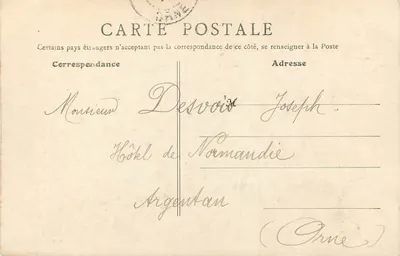 ORNE
CARTE POSTALE
Certains pays étrangers n'acceptant pas la correspondance de ce côté, se renseigner à la Poste
Correspondance Adresse
Monsieur Desvoix Joseph.
Hôtel de Normandie
Argentan
(Orne)